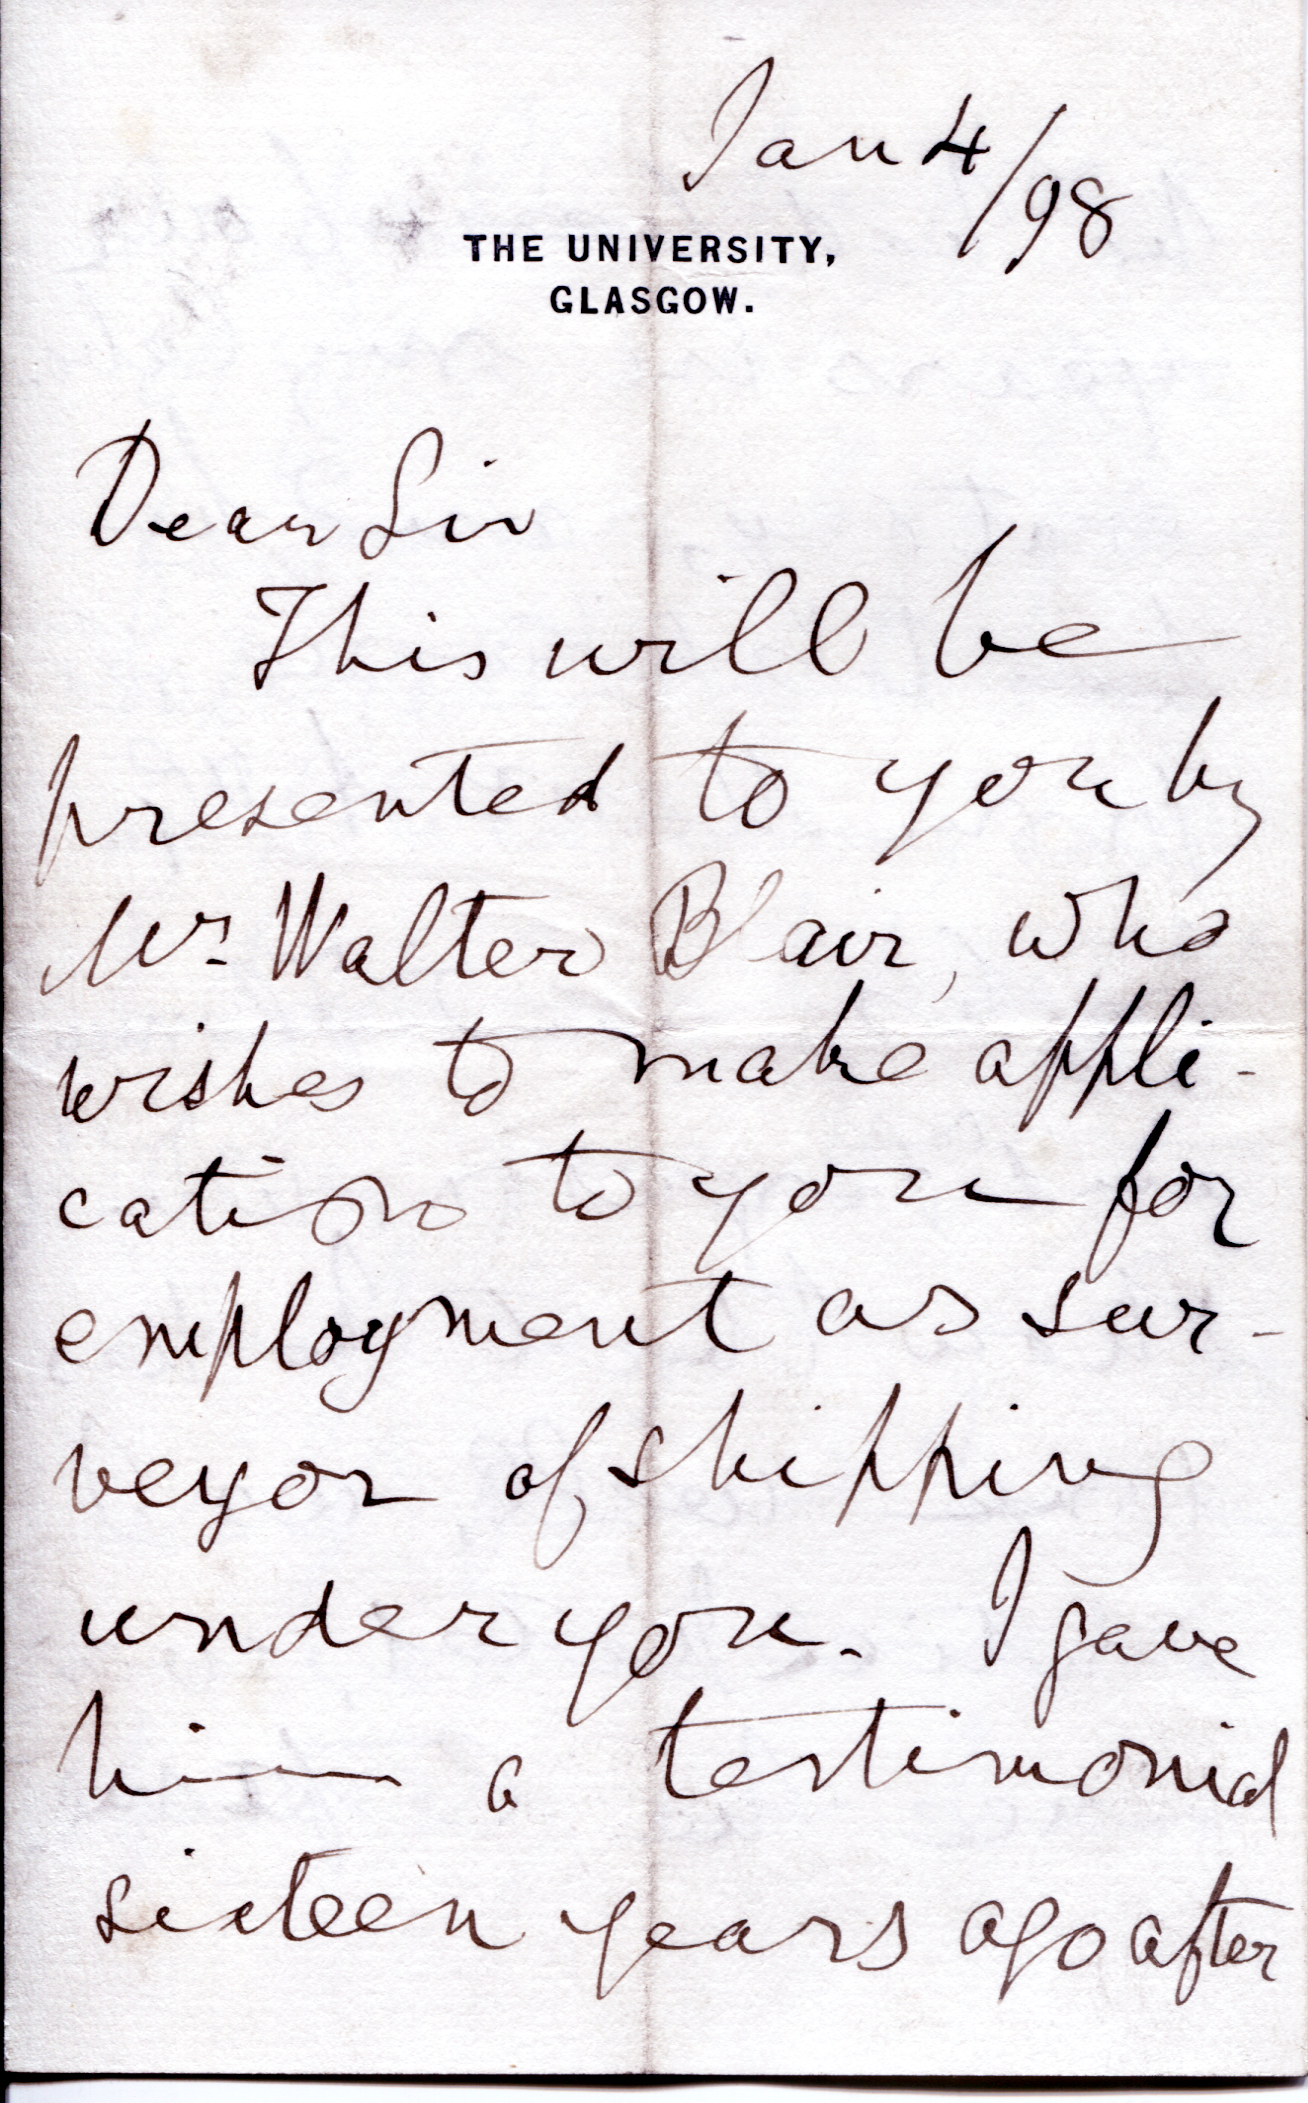 Jan 4/98
THE UNIVERSITY,
GLASGOW.
Dear Sir
This will be
presented to you by
Mr. Walter Blair, who
wishes to make appli-
cation to you for
employment as sur-
veyor of shipping
under you. I gave
him a testimonial
sixteen years ago after